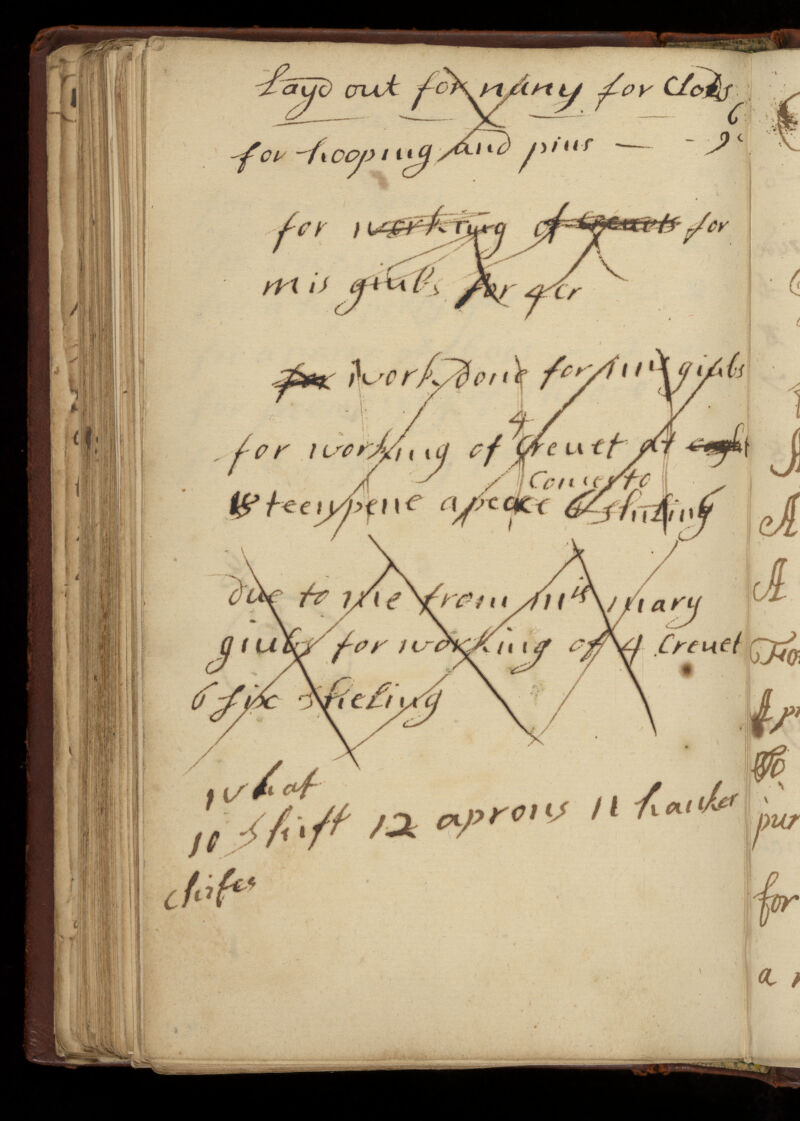 Layd out for nany for Clods
for hooping and pins — - 9
6
for working of Creuets for
mis giubs for 4 Cr
for work done for mis giubs
4
for working of Creuet at
18 teen pene a peace 6 shiling
Comes to
due to me from mis mary
giubs for working of 4 Creuet
6 six sheling
what
10 shift 12 aprons 11 hanker
chifes
A
A
A
For
Apr
To
pur
for
a